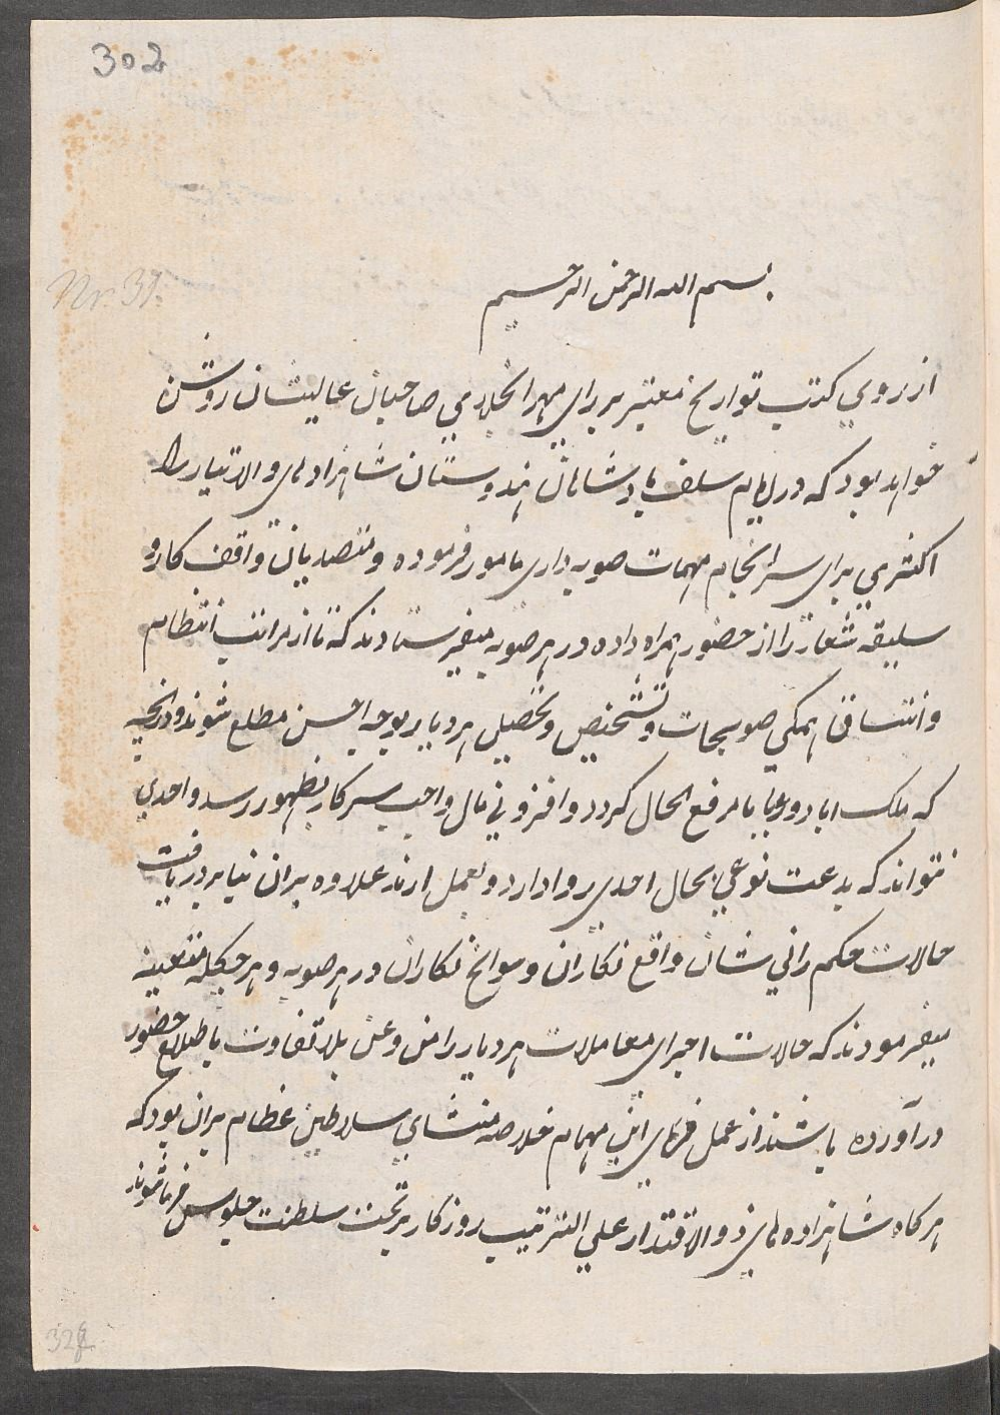 302
Nr. 37.
بسم الله الرحمن الرحیم
از روی کتب تواریخ معتبر برای مهر انجلای صاحبان عالیشان روشن
خواهد بود که در ایام سلف پادشاهان هندوستان شاهزادهای والاتبار را
اکثری برای سرانجام مهمات صوبه داری مامور فرموده و متصدیان واقف کار و
سلیقه شعار را از حضور همراه داده در هر صوبه میفرستادند که تا از مراتب انتظام
و اتساق همگی صوبجات و تشخیص و تحصیل هر دیار بوجه احسن مطلع شوند و در نتیجه
که ملک اباد و رعایا مرفع الحال گردد و افزونی مال واجب سرکار بظهور رسد و احدی
نتواند که بدعت نوعی بحال احدی روادارد و بعمل ارند علاوه بران بنابر دریافت
حالات حکم رانی شان واقع نگاران و سوانح نگاران در هر صوبه و هر چکله متعینه
میفرمودند که حالات اجرای معاملات هر دیار را من و عن بلا تفاوت باطلاع حضور
درآورده باشند از عمل فرمای این مهام خلاصه منشای سلاطین عظام بران بود که
هرگاه شاهزاده های ذو الاقتدار علی الترتیب روزگار بر تخت سلطنت جلوس فرما شوند